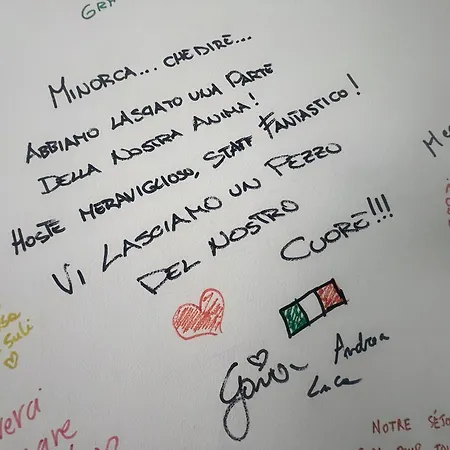 GRA
MINORCA... CHE DIRE...
ABBIAMO LASCIATO UNA PARTE
DELLA NOSTRA ANIMA!
HOSTE MERAVIGLIOSO, STAFF FANTASTICO!
VI LASCIAMO UN PEZZO
DEL NOSTRO
CUORE!!!
Andrea
Luca
NOTRE SÉJO